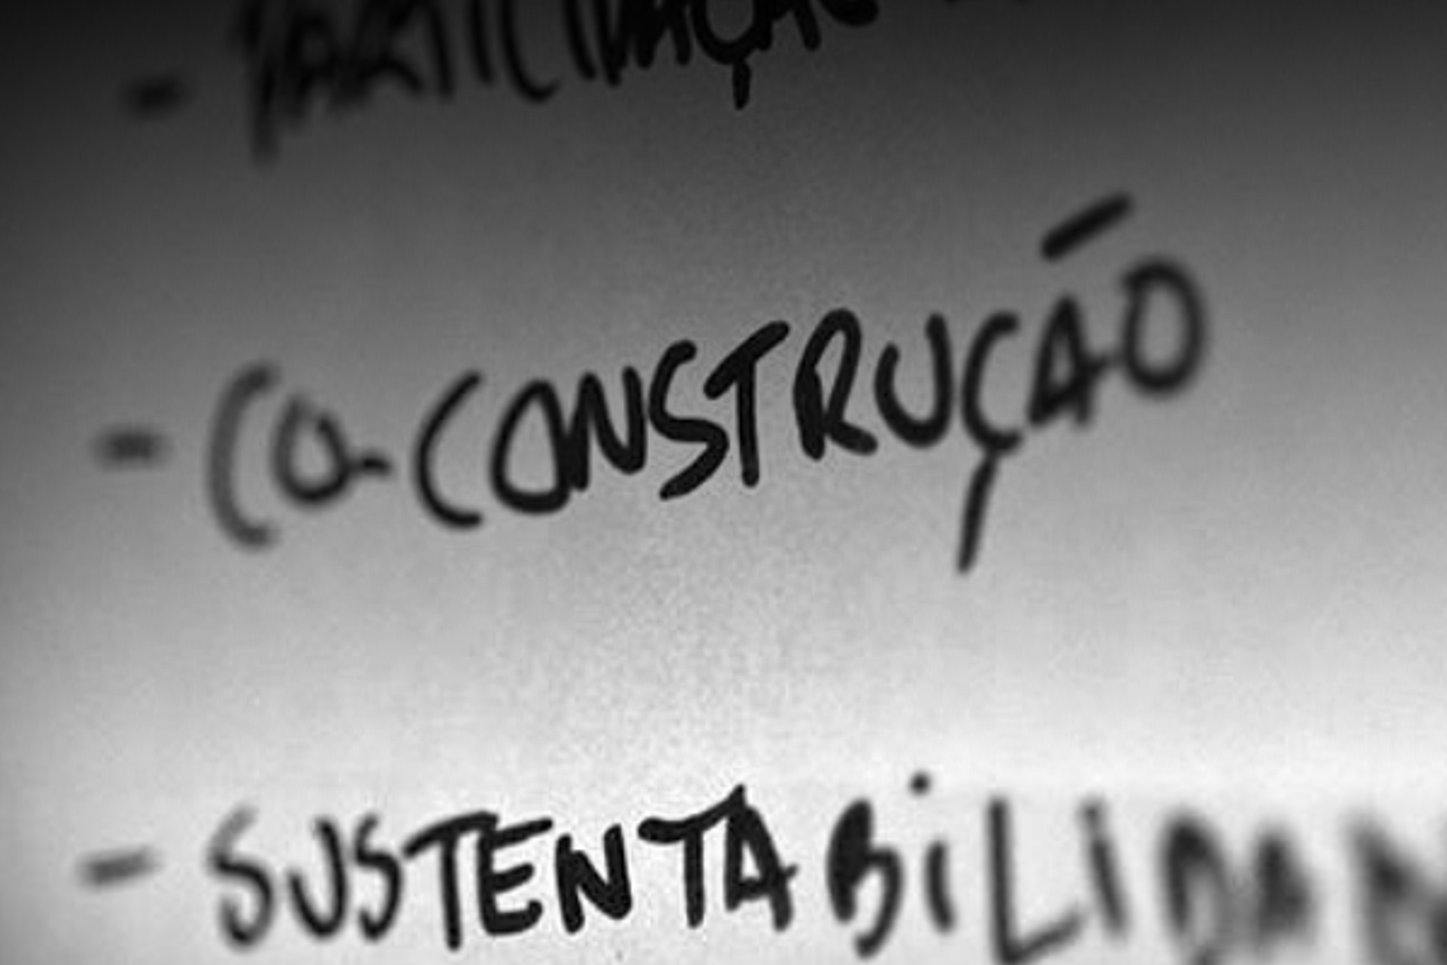 - PARTICIPAÇÃO
- CO-CONSTRUÇÃO
- SUSTENTABiLIDAD